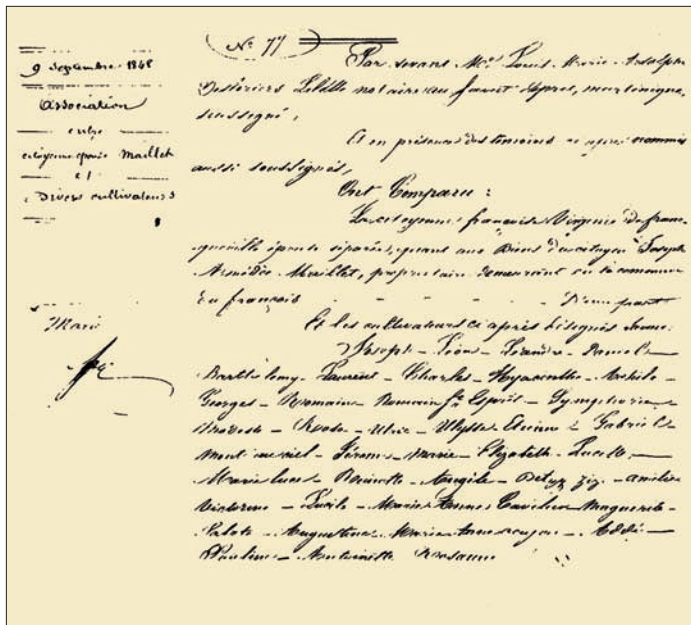 N° 77
9 Septembre 1848
Association
entre
citoyenne épouse Maillet
et
Divers cultivateurs
Par devant Me Louis Marie Adolphe
notaire au
soussigné,
Et en présence des témoins ci après nommés
aussi soussignés,
Ont Comparu :
La citoyenne françoise Virginie de franc
épouse séparée, quant aux Biens du citoyen Joseph
Amédée Maillet, propriétaire demeurant en la commune
Du françois D'une part
Et les cultivateurs ci après désignés
Marie
Joseph - Léon - Léandre -
Barthélemy - Laurent - Charles - Hyacinthe - Achile -
Georges - Romain - Romain fs Esprit -
Ulric - Ulysse Etienne - Gabriel -
Jérome - Marie - Elizabeth - Lucette -
Marie luce - Angèle - zizi - amélie
Victorine - Lucile - Marie Anne Marguerite -
Augustine Marie Anne - Addé -
Pauline - Antoinette Rosanne